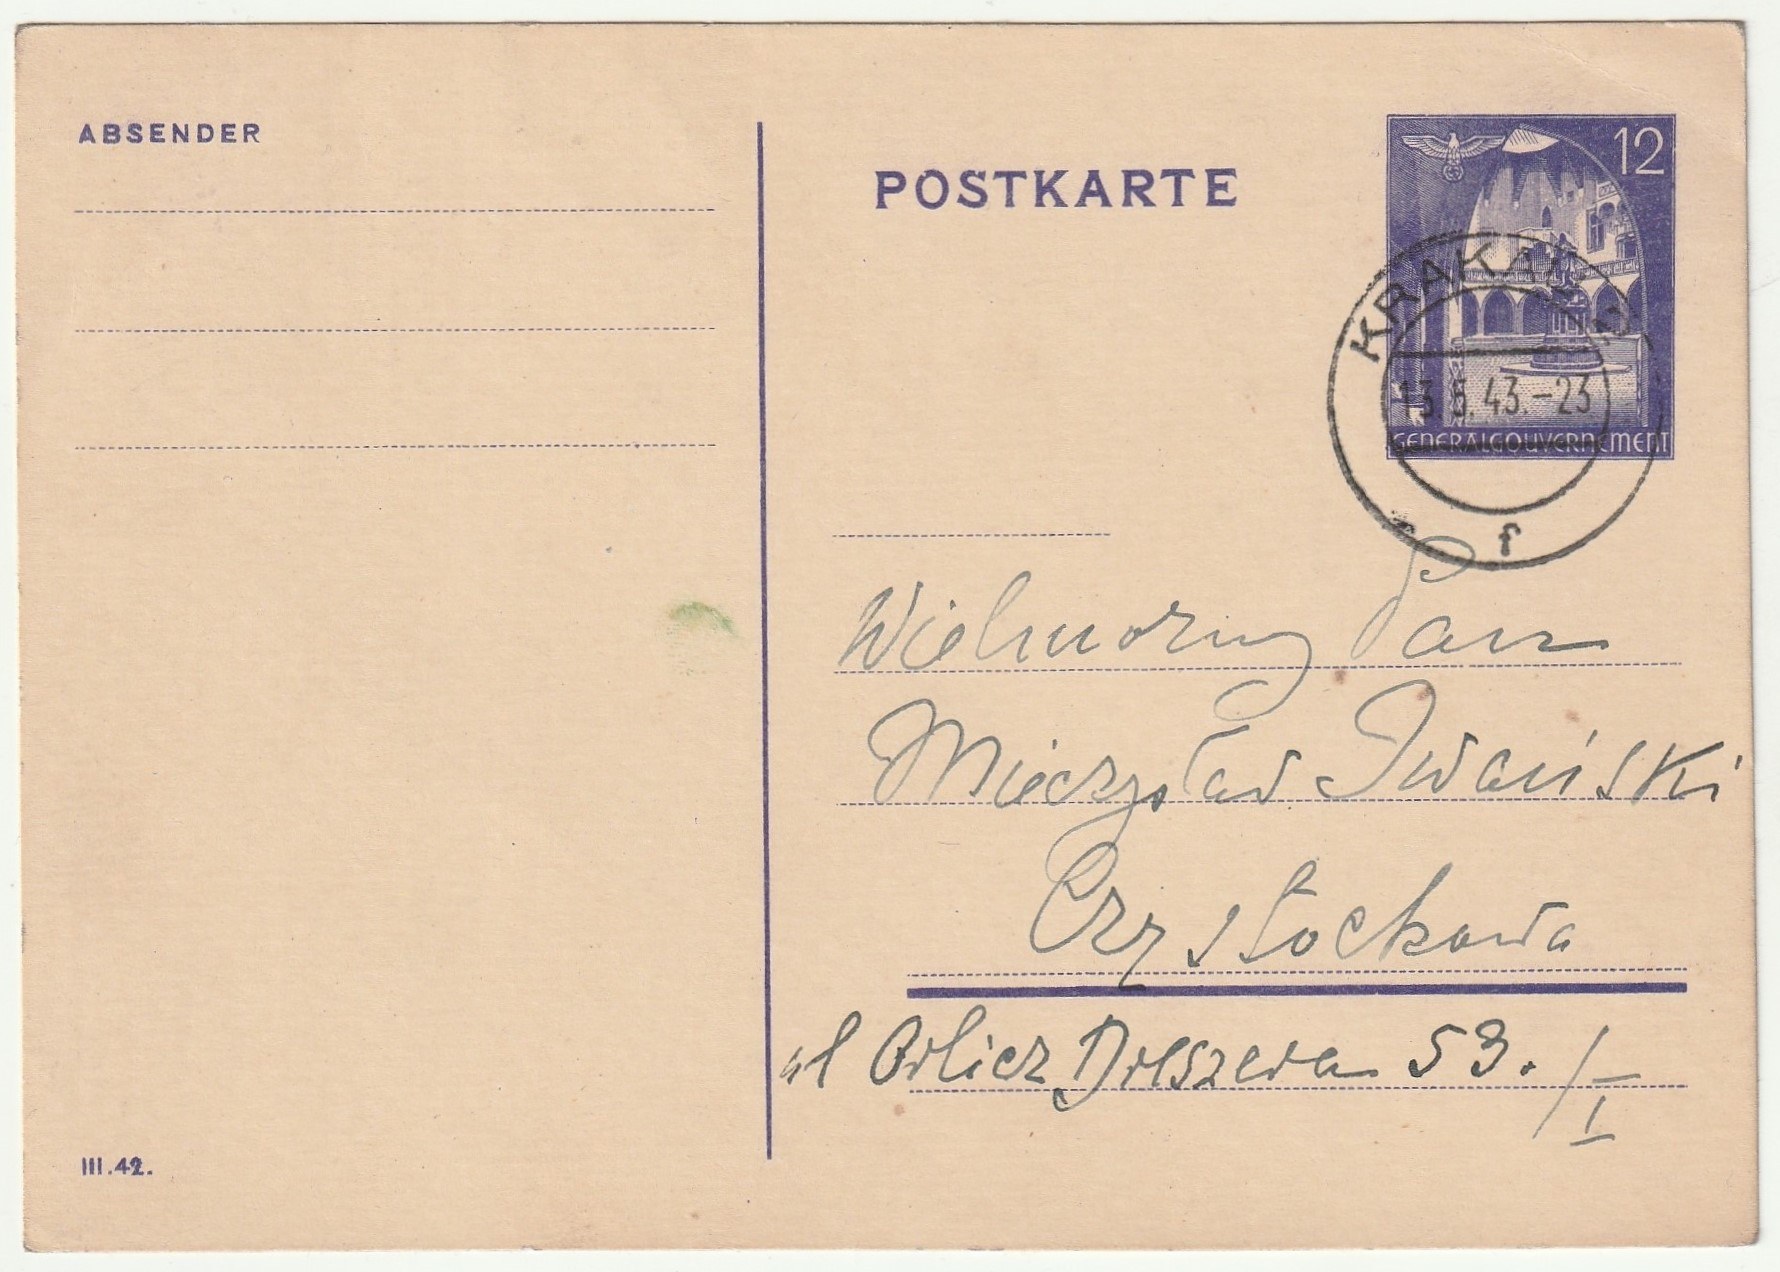 ABSENDER
POSTKARTE
12
KRAKAU
13.5.43.-23
GENERALGOUVERNEMENT
f
Wielmożny Pan
Mieczysław Iwański
Częstochowa
ul Orlicz Dreszera 53. / I
III.42.